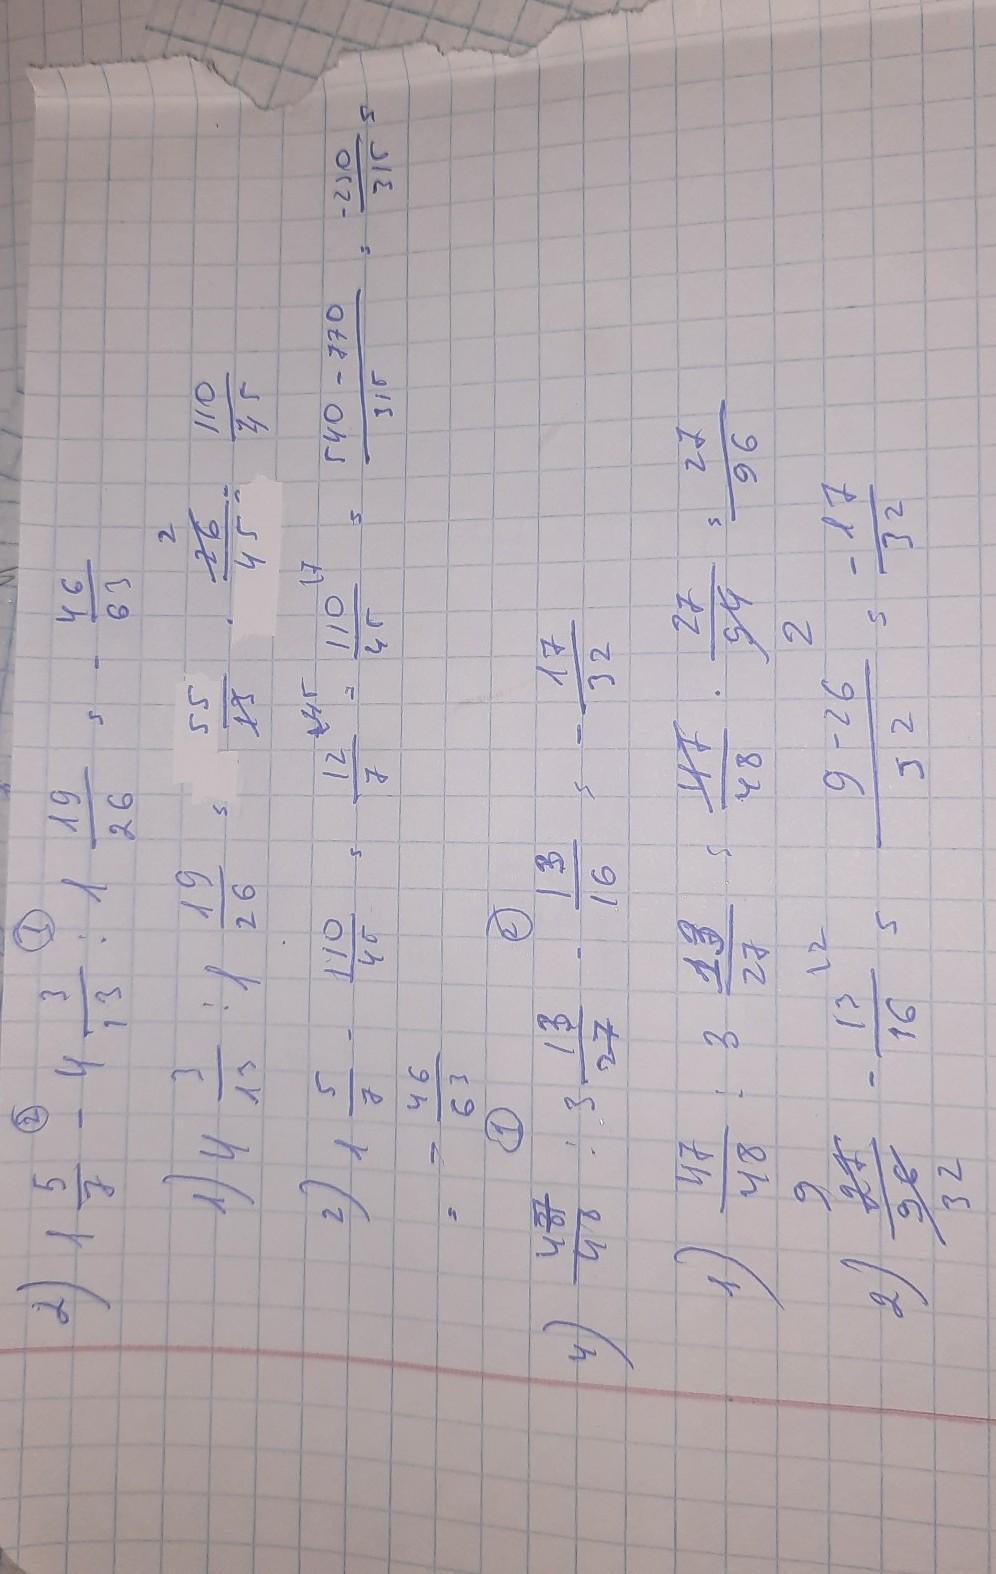 2) 1 5/7 - 4 3/13 : 1 19/26 = - 46/63
1) 4 3/13 : 1 19/26 = 55/13 · 26/45 = 110/45
2) 1 5/7 - 110/45 = 12/7 - 110/45 = 540 - 770/315 = -230/315 =
= - 46/63
4) 47/48 : 3 13/27 - 13/16 = - 17/32
1) 47/48 : 3 13/27 = 47/48 · 27/94 = 27/96
2) 27/96 - 13/16 = 9 - 26/32 = - 17/32